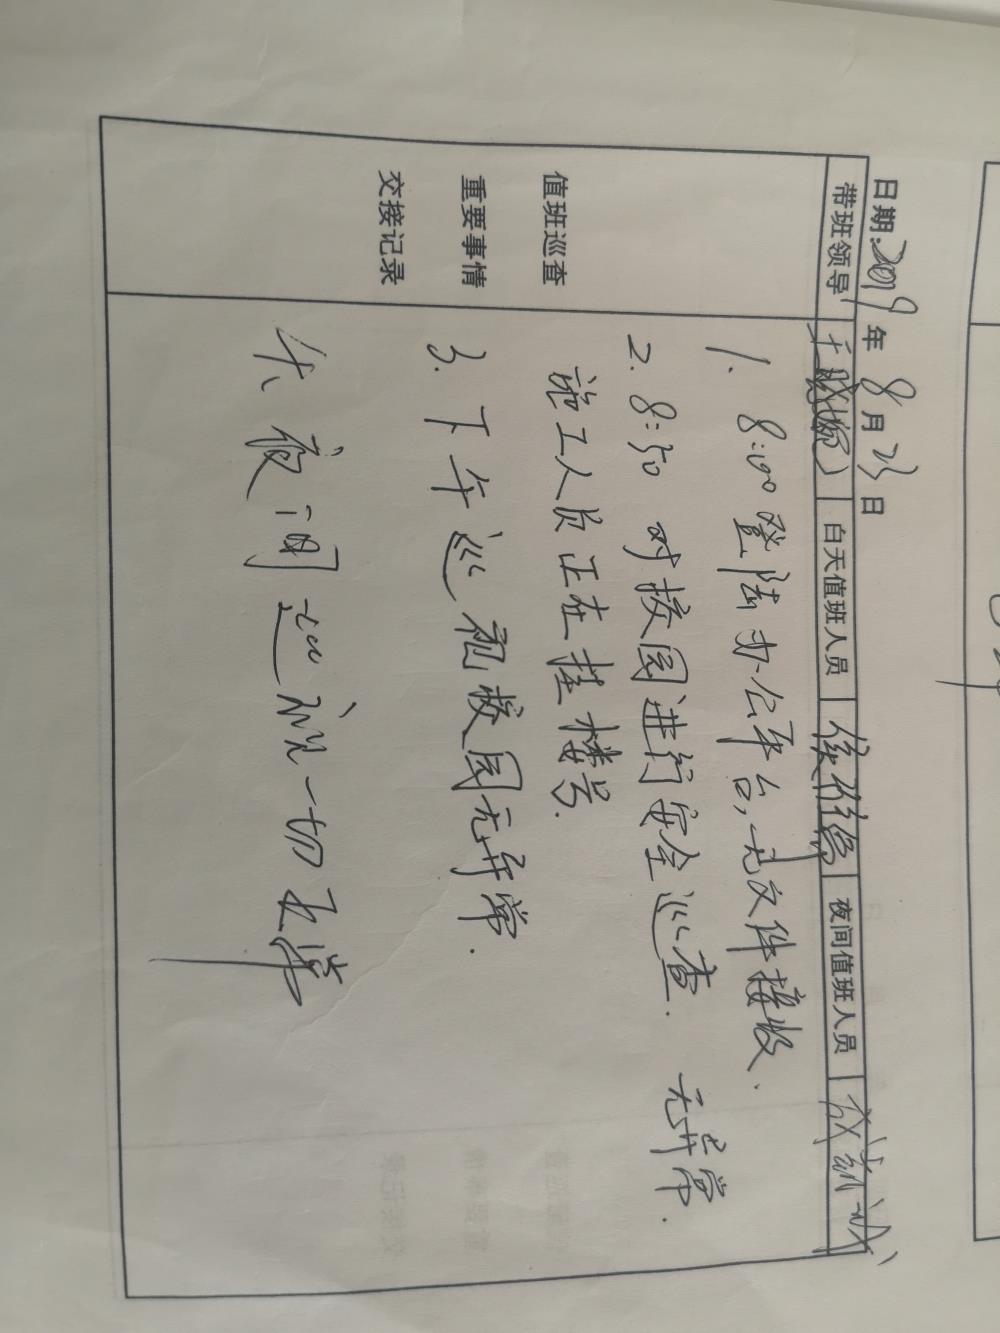 日期:2019年8月23日
带班领导 白天值班人员 夜间值班人员
值班巡查
重要事情
交接记录
1. 8:00登陆办公平台,无文件接收.
2. 8:30 对校园进行安全巡查. 无异常.
施工人员正在挂楼号.
3. 下午巡视校园无异常.
4、夜间巡视一切正常